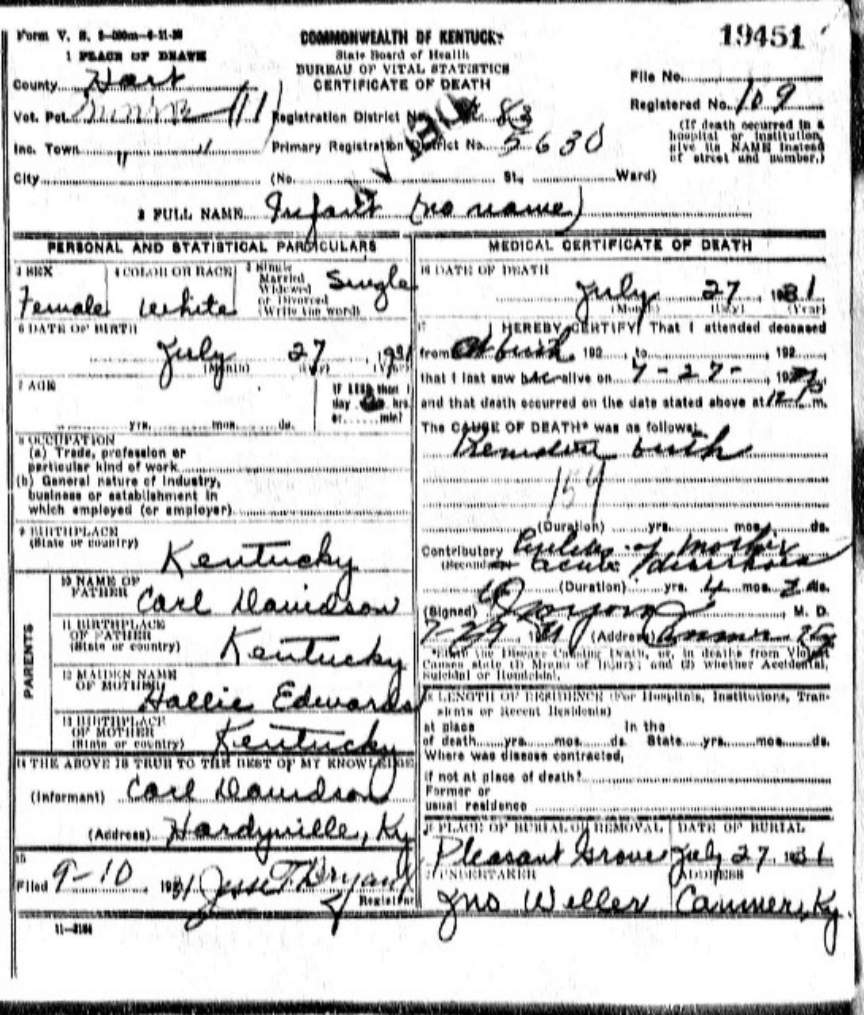 Form V. S.
COMMONWEALTH OF KENTUCKY
19451
1 PLACE OF DEATH
State Board of Health
BUREAU OF VITAL STATISTICS
CERTIFICATE OF DEATH
County Hart
File No.
Vot. Pct. 111 Registration District No. 83
Registered No. 109
(If death occurred in a hospital or institution, give its NAME instead of street and number.)
Inc. Town " " Primary Registration District No. 5630
City (No. St., Ward)
2 FULL NAME Infant (no name)
PERSONAL AND STATISTICAL PARTICULARS
3 SEX Female
4 COLOR OR RACE White
5 Single Married Widowed or Divorced (Write the word) Single
6 DATE OF BIRTH
July 27, 1931
(Month) (Day) (Year)
7 AGE
yrs. mos. ds.
IF LESS than 1 day hrs. or min?
8 OCCUPATION
(a) Trade, profession or particular kind of work
(b) General nature of industry, business or establishment in which employed (or employer)
9 BIRTHPLACE
(State or country) Kentucky
PARENTS
10 NAME OF FATHER Carl Davidson
11 BIRTHPLACE OF FATHER (State or country) Kentucky
12 MAIDEN NAME OF MOTHER Hallie Edwards
13 BIRTHPLACE OF MOTHER (State or country) Kentucky
14 THE ABOVE IS TRUE TO THE BEST OF MY KNOWLEDGE
(Informant) Carl Davidson
(Address) Hardyville, Ky
15
Filed 9-10, 1931 Jesse T Bryant
Registrar
11-3184
MEDICAL CERTIFICATE OF DEATH
16 DATE OF DEATH
July 27 1931
(Month) (Day) (Year)
17 I HEREBY CERTIFY, That I attended deceased
from At birth 192, to, 192,
that I last saw h alive on 7-27-
and that death occurred on the date stated above at m.
The CAUSE OF DEATH* was as follows:
birth
159
(Duration) yrs. mos. ds.
Contributory of mother
(Secondary) acute diarrhoea
(Duration) yrs. mos. ds.
(Signed) M. D.
(Address)
*State the Disease Causing Death, or, in deaths from Violent Causes state (1) Means of Injury; and (2) whether Accidental, Suicidal or Homicidal.
18 LENGTH OF RESIDENCE (For Hospitals, Institutions, Transients or Recent Residents)
at place of death yrs. mos. ds. In the State yrs. mos. ds.
Where was disease contracted,
if not at place of death?
Former or
usual residence
19 PLACE OF BURIAL OR REMOVAL Pleasant Grove
DATE OF BURIAL July 27, 1931
20 UNDERTAKER Jno Weller
ADDRESS Canmer, Ky.